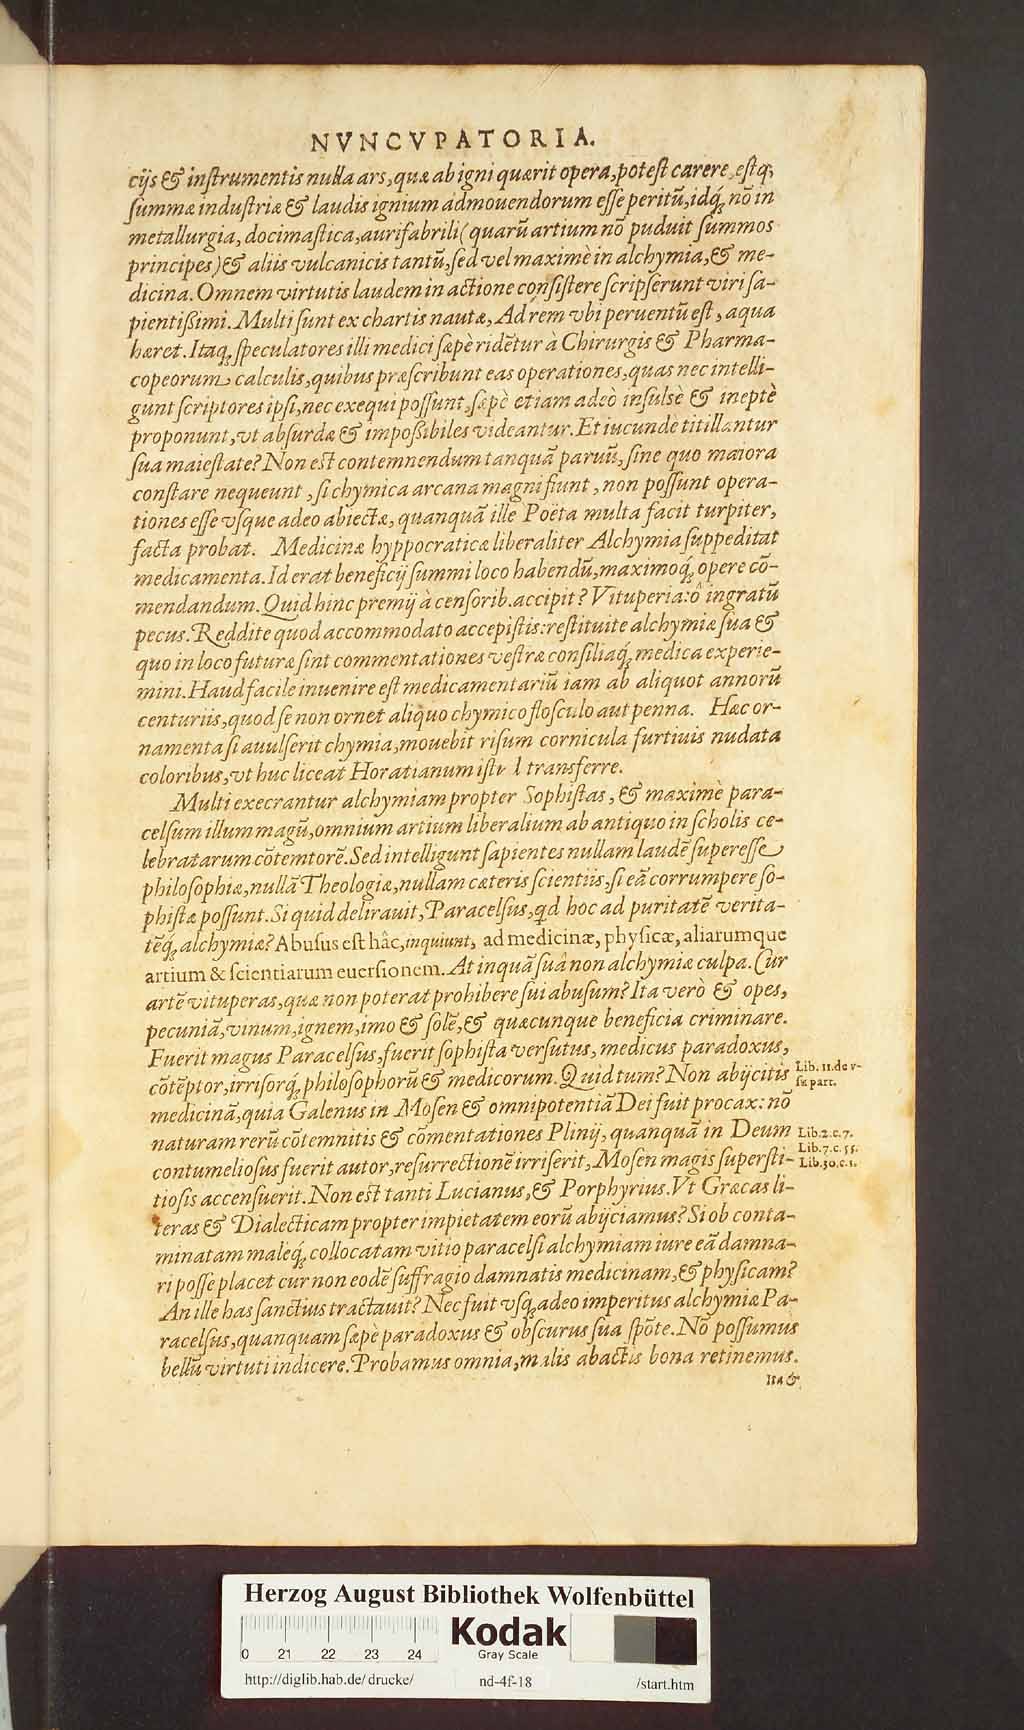 NVNCVPATORIA.
cijs & inſtrumentis nulla ars, quæ ab igni quærit opera, poteſt carere, eſtq́;
ſummæ induſtriæ & laudis ignium admouendorum eſſe peritũ, idq́; nõ in
metallurgia, docimaſtica, aurifabrili (quarũ artium nõ puduit ſummos
principes) & aliis vulcanicis tantũ, ſed vel maximè in alchymia, & me-
dicina. Omnem virtutis laudem in actione conſiſtere ſcripſerunt viri ſa-
pientißimi. Multi ſunt ex chartis nautæ, Ad rem vbi peruentũ eſt, aqua
hæret. Itaq; ſpeculatores illi medici ſæpè ridẽtur à Chirurgis & Pharma-
copeorum calculis, quibus præſcribunt eas operationes, quas nec intelli-
gunt ſcriptores ipſi, nec exequi poſſunt, ſæpè etiam adeò inſulsè & ineptè
proponunt, vt abſurdæ & impoßibiles videantur. Et iucunde titillantur
ſua maieſtate? Non eſt contemnendum tanquã paruũ, ſine quo maiora
conſtare nequeunt, ſi chymica arcana magni fiunt, non poſſunt opera-
tiones eſſe vſque adeo abiectæ, quanquã ille Poëta multa facit turpiter,
facta probat. Medicinæ hyppocraticæ liberaliter Alchymia ſuppeditat
medicamenta. Id erat beneficij ſummi loco habendũ, maximoq́; opere cõ-
mendandum. Quid hinc premij à cenſorib. accipit? Vituperia: ô ingratũ
pecus. Reddite quod accommodato accepiſtis: reſtituite alchymiæ ſua &
quo in loco futuræ ſint commentationes veſtræ conſiliaq́; medica experie-
mini. Haud facile inuenire eſt medicamentariũ iam ab aliquot annorũ
centuriis, quod ſe non ornet aliquo chymico floſculo aut penna. Hæc or-
namenta ſi auulſerit chymia, mouebit riſum cornicula furtiuis nudata
coloribus, vt huc liceat Horatianum transferre.
Multi execrantur alchymiam propter Sophiſtas, & maximè para-
celſum illum magũ, omnium artium liberalium ab antiquo in ſcholis ce-
lebratarum cõtemtorẽ. Sed intelligunt ſapientes nullam laudẽ ſupereſſe
philoſophiæ, nullã Theologiæ, nullam cæteris ſcientiis, ſi eã corrumpere ſo-
phiſtæ poſſunt. Si quid delirauit, Paracelſus, qd hoc ad puritatẽ verita-
tẽq́; alchymiæ? Abuſus eſt hâc, inquiunt, ad medicinæ, phyſicæ, aliarumque
artium & ſcientiarum euerſionem. At inquã ſuâ non alchymiæ culpa. Cur
artẽ vituperas, quæ non poterat prohibere ſui abuſum? Ita verò & opes,
pecuniã, vinum, ignem, imo & ſolẽ, & quæcunque beneficia criminare.
Fuerit magus Paracelſus, fuerit ſophiſta verſutus, medicus paradoxus,
cõtẽptor, irriſorq́; philoſophorũ & medicorum. Quid tum? Non abijcitis
Lib. 11. de v-
ſu part.
medicinã, quia Galenus in Moſen & omnipotentiã Dei fuit procax: nõ
naturam rerũ cõtemnitis & cõmentationes Plinij, quanquã in Deum
Lib. 2. c. 7.
Lib. 7. c. 55.
Lib. 30. c. 1.
contumelioſus fuerit autor, reſurrectionẽ irriſerit, Moſen magis ſuperſti-
tioſis accenſuerit. Non eſt tanti Lucianus, & Porphyrius. Vt Græcas li-
teras & Dialecticam propter impietatem eorũ abijciamus? Si ob conta-
minatam maleq́; collocatam vitio paracelſi alchymiam iure eã damna-
ri poſſe placet cur non eodẽ ſuffragio damnatis medicinam, & phyſicam?
An ille has ſanctius tractauit? Nec fuit vſq; adeo imperitus alchymiæ Pa-
racelſus, quanquam ſæpè paradoxus & obſcurus ſua ſpõte. Nõ poſſumus
bellũ virtuti indicere. Probamus omnia, malis abactis bona retinemus.
Ita &
Herzog August Bibliothek Wolfenbüttel
0 21 22 23 24
Kodak
Gray Scale
http://diglib.hab.de/drucke/ nd-4f-18 /start.htm